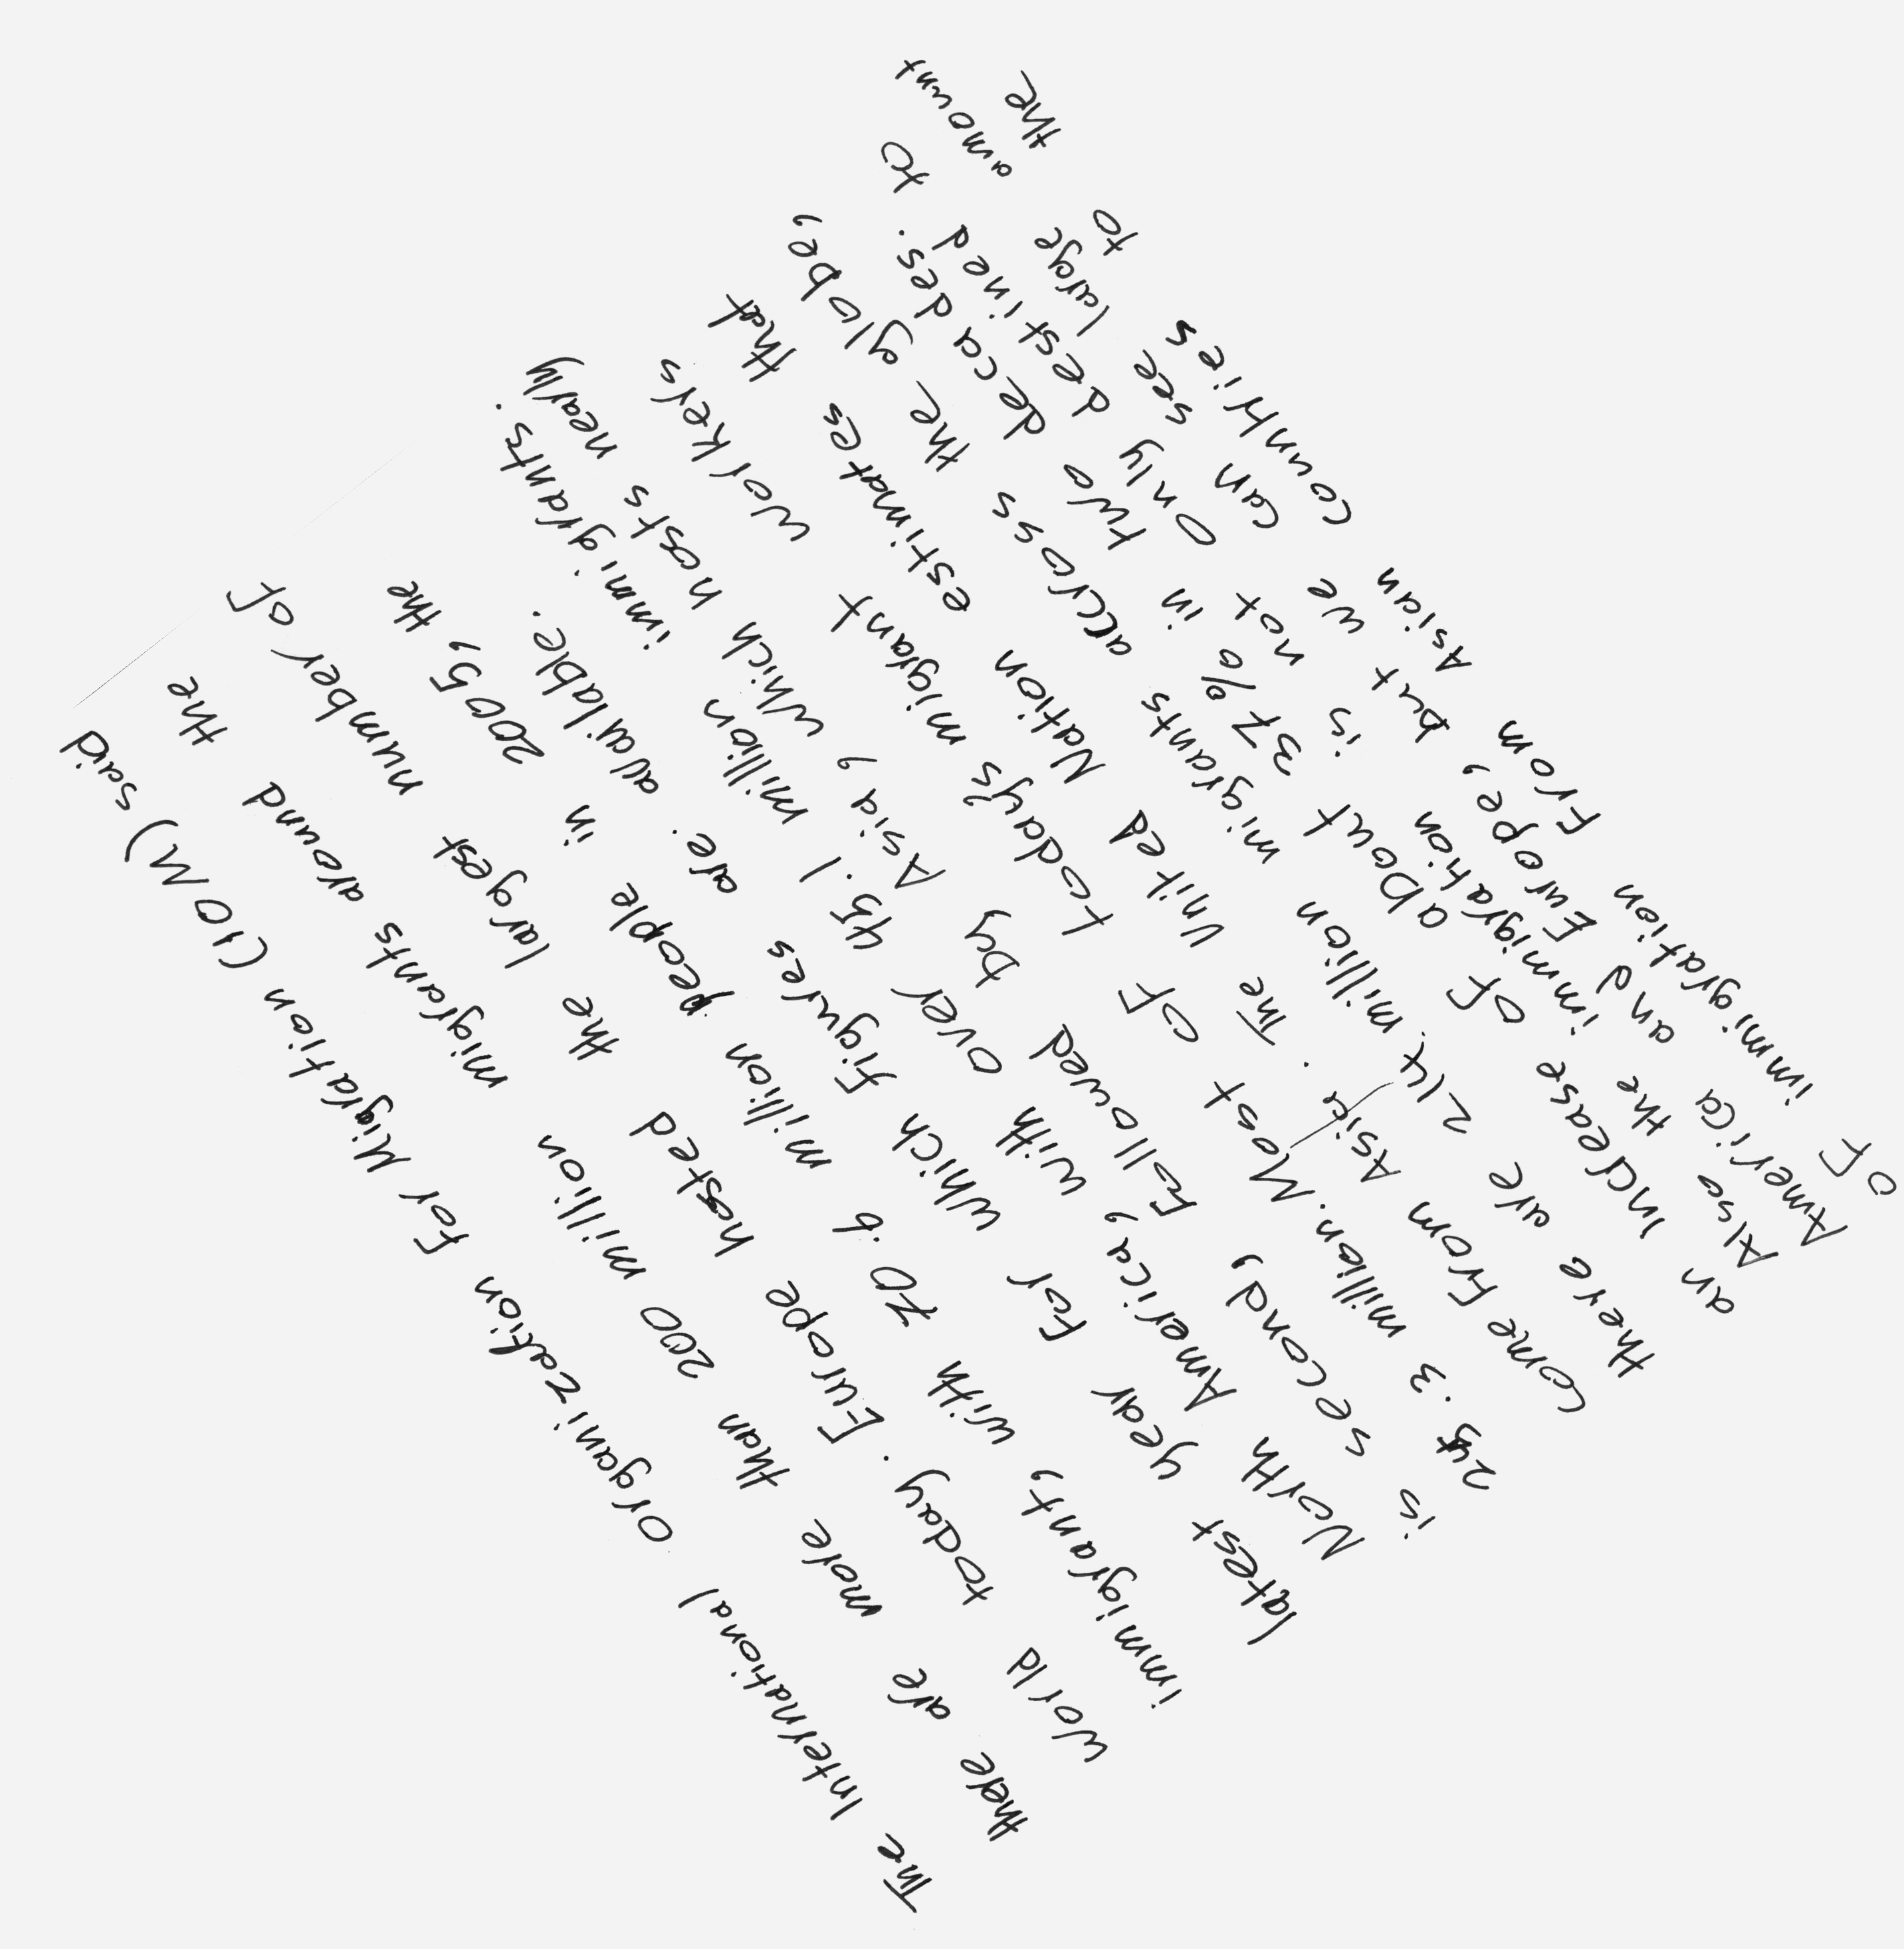 The International Organization for Migration (IOM) said
there are more than 200 million migrants around the
world today. Europe hosted the largest number of
immigrant, with 70.6 million people in 2005, the
latest year for which figures are. available.
North America, with over 45.1 million immigrants.
is second, Followed by Asia, which hosts nearly
25.3 million. Most of today's migrant workers
come from Asia. The United Nation estimates that
there are 214 million migrants accross the globe,
an increase of about 37% in two decades.
Also the immigration is not only destined to
America and Europe, but we can see large amount
of immigration from Asian countries to the